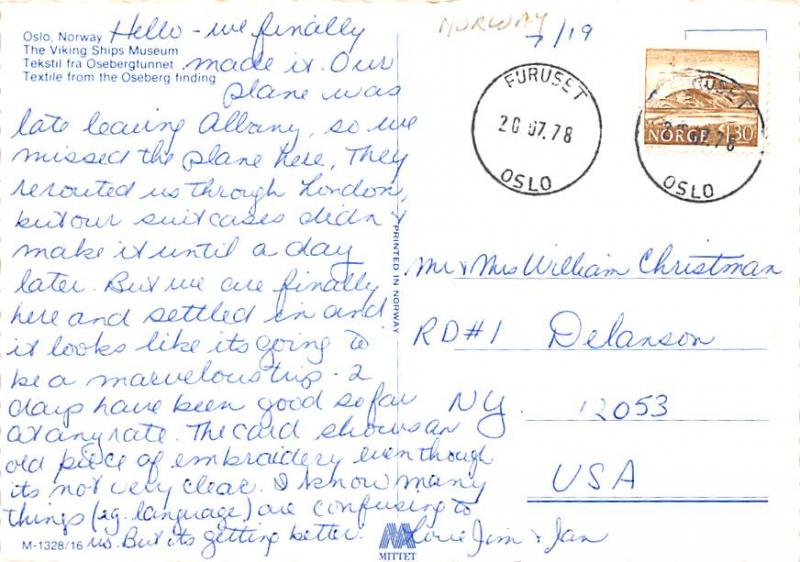 Oslo, Norway
The Viking Ships Museum
Tekstil fra Osebergfunnet
Textile from the Oseberg finding
Hello - we finally
made it. Our
plane was
late leaving Albany, so we
missed the plane here. They
rerouted us through London,
but our suitcases didn't
make it until a day
later. But we are finally
here and settled in and
it looks like its going to
be a marvelous trip - 2
days have been good so far
at any rate. The card shows an
old piece of embroidery even though
its not very clear. I know many
things (eg. language) are confusing to
us. But its getting better.
Love Jim & Jan
M-1328/16
MITTET
PRINTED IN NORWAY
NORWAY
7/19
FURUSET
20.07.78
OSLO
NORGE 130
FURUSET
20.07.78
OSLO
Mr & Mrs William Christman
RD#1 Delanson
NY 12053
USA